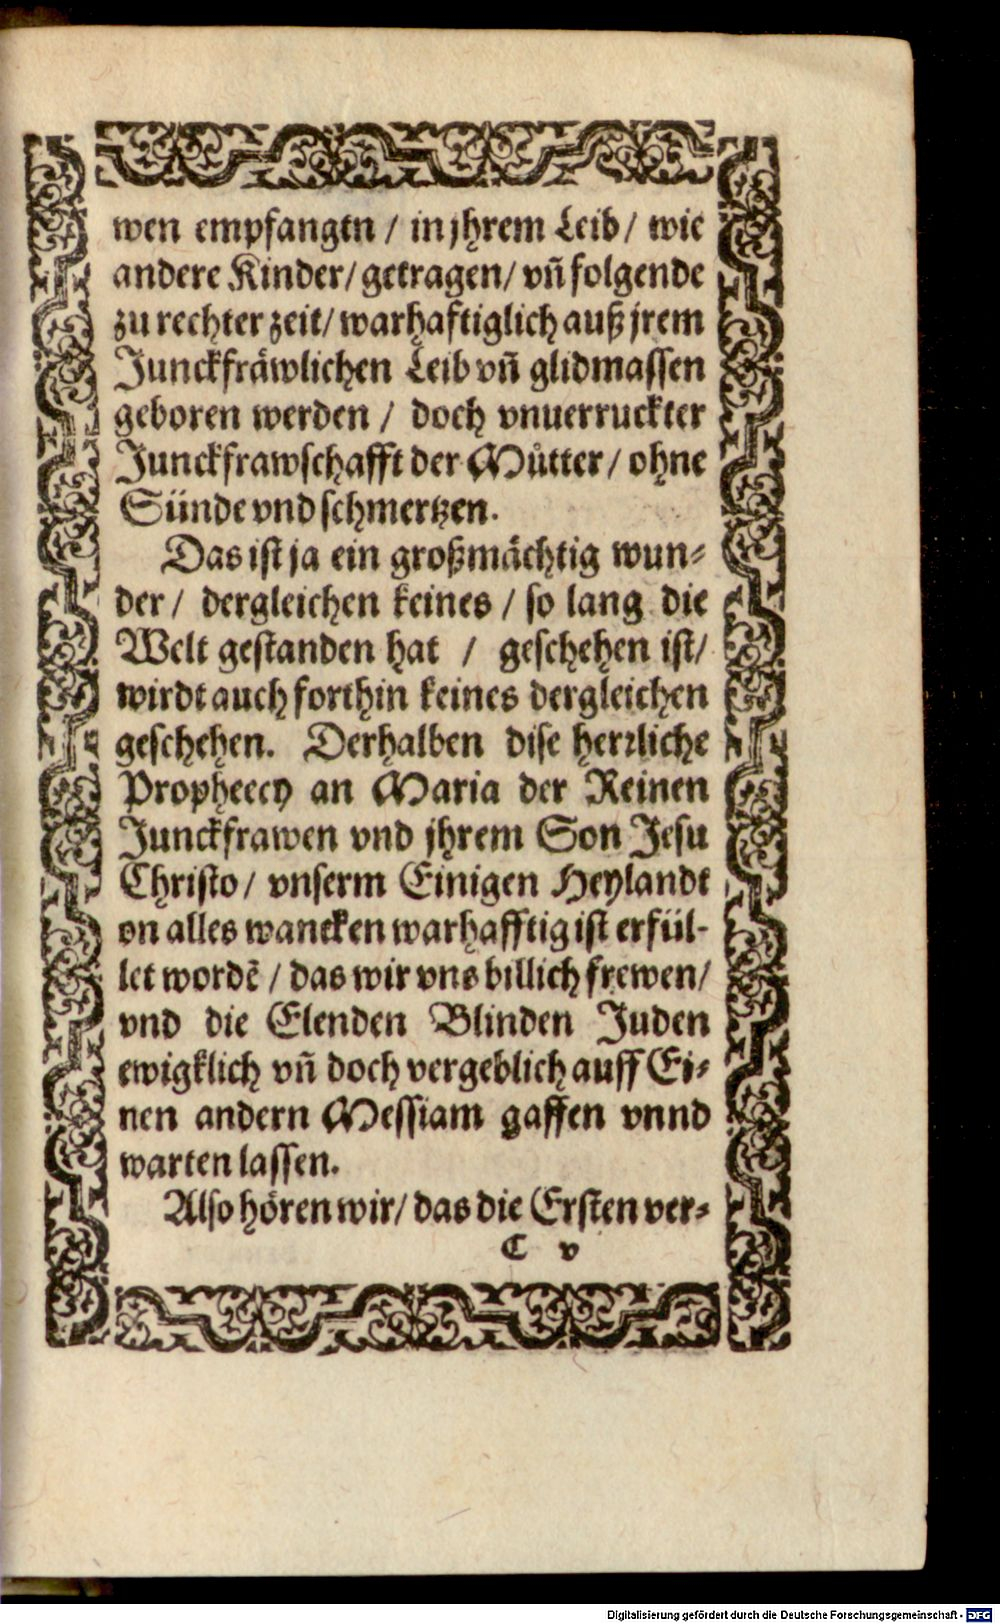 wen empfangen / in jhrem Leib / wie
andere Kinder / getragen / vñ folgende
zu rechter zeit / warhafftiglich auß jrem
Junckfräwlichen Leib vñ glidmassen
geboren werden / doch vnuerruckter
Junckfrawschafft der Můtter / ohne
Sünde vnd schmertzen.
Das ist ja ein großmächtig wun-
der / dergleichen keines / so lang die
Welt gestanden hat / geschehen ist /
wirdt auch forthin keines dergleichen
geschehen. Derhalben dise herrliche
Prophecey an Maria der Reinen
Junckfrawen vnd jhrem Son Jesu
Christo / vnserm Einigen Heylandt
on alles wancken warhafftig ist erfül-
let wordē / das wir vns billich frewen /
vnd die Elenden Blinden Juden
ewigklich vñ doch vergeblich auff Ei-
nen andern Messiam gaffen vnnd
warten lassen.
Also hören wir / das die Ersten ver-
C v
Digitalisierung gefördert durch die Deutsche Forschungsgemeinschaft - DFG